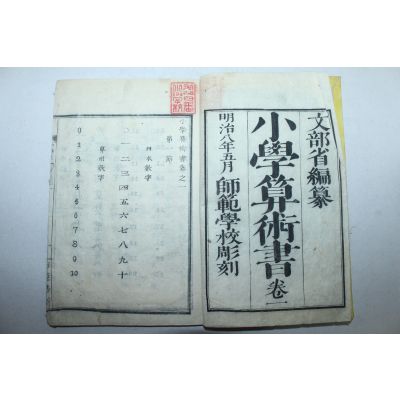 文部省編纂
小學算術書 卷一
明治八年五月 師範學校彫刻
小學算術書卷之一
第一節
日本數字
〇一二三四五六七八九十
算用數字
0 1 2 3 4 5 6 7 8 9 10